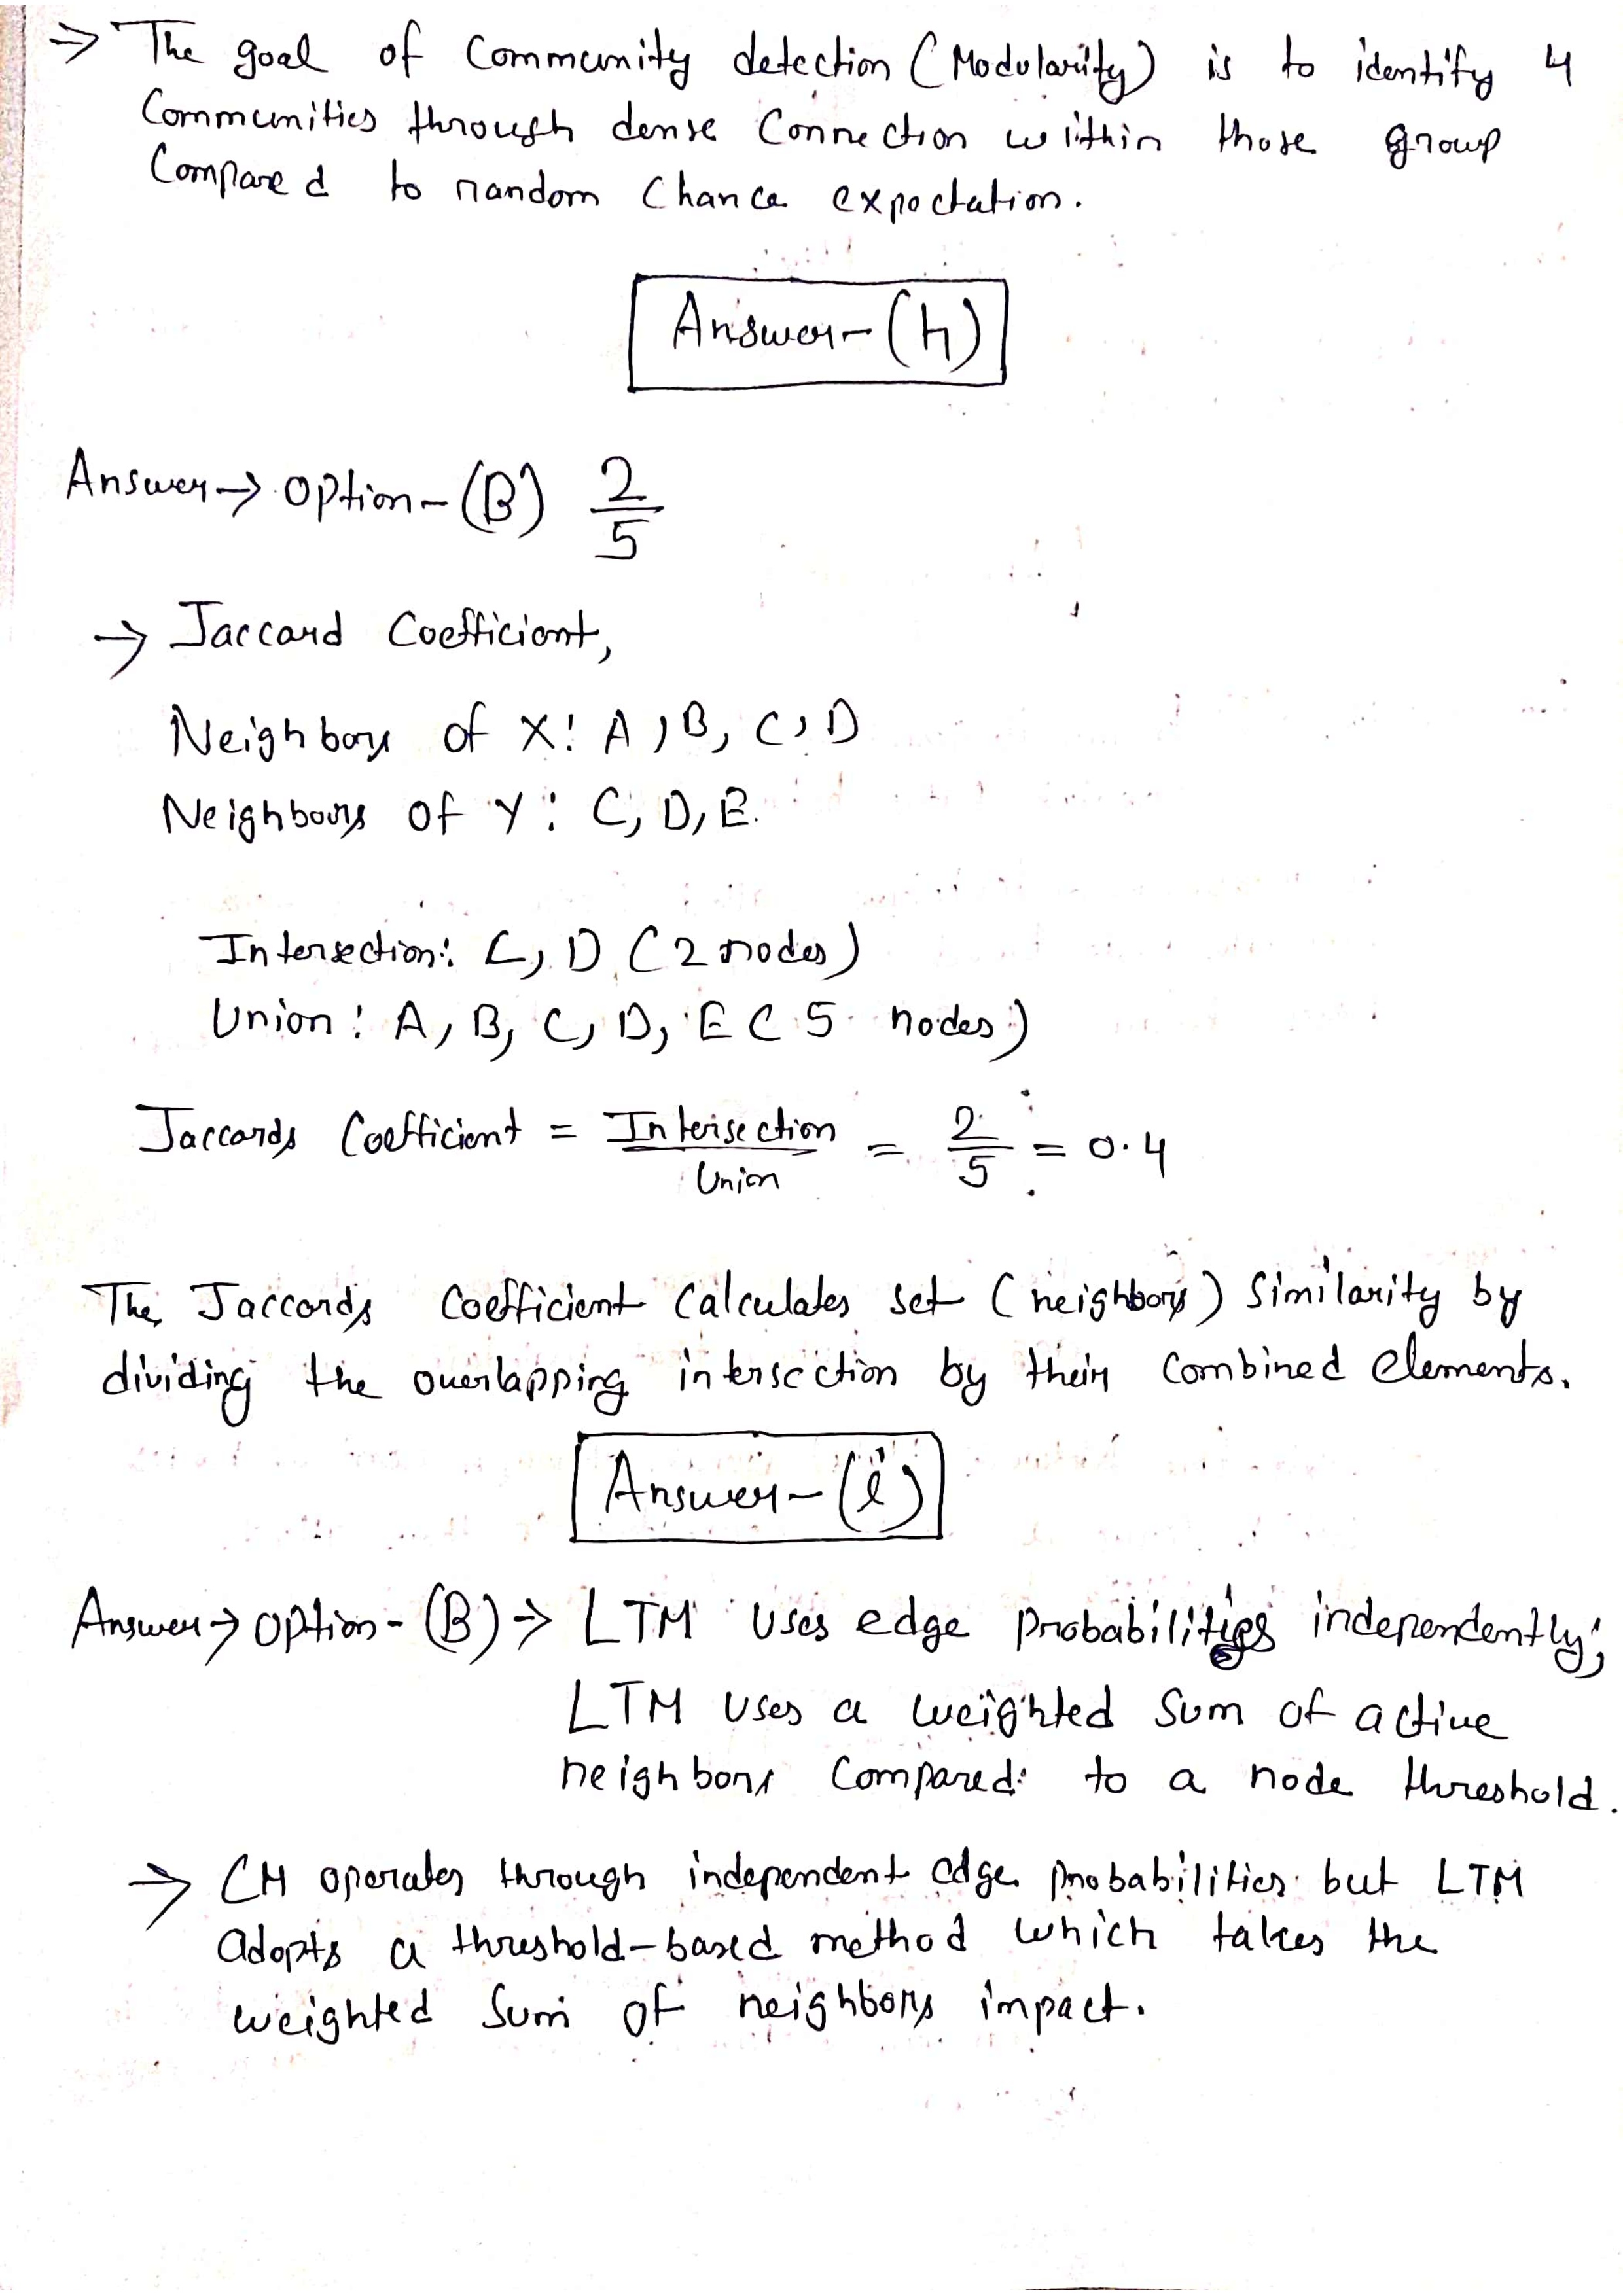 ⇒ The goal of Community detection (Modularity) is to identify 4
Communities through dense Connection within those group
Compared to random Chance expectation.
Answer-(h)
Answer → option-(B) 2/5
→ Jaccard Coefficient,
Neighbors of X: A, B, C, D
Neighbours of Y: C, D, E.
Intersection: C, D (2 nodes)
Union: A, B, C, D, E (5 nodes)
Jaccards Coefficient = Intersection/Union = 2/5 = 0.4
The Jaccards Coefficient Calculates set (neighbors) Similarity by
dividing the overlapping intersection by their Combined elements.
Answer-(i)
Answer → option-(B) → LTM Uses edge Probabilities independently;
LTM Uses a weighted Sum of active
neighbors Compared to a node threshold.
→ CM operates through independent edge Probabilities but LTM
adopts a threshold-based method which takes the
weighted Sum of neighbors impact.